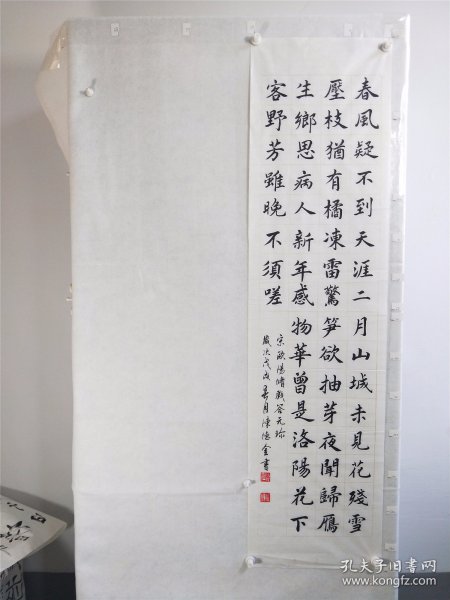 春風疑不到天涯二月山城未見花殘雪
壓枝猶有橘凍雷驚笋欲抽芽夜聞歸鴈
生鄉思病人新年感物華曾是洛陽花下
客野芳雖晚不須嗟
宋歐陽脩戲答元珍
歲次戊戌春月陳
金書
孔夫子旧书网
www.kongfz.com